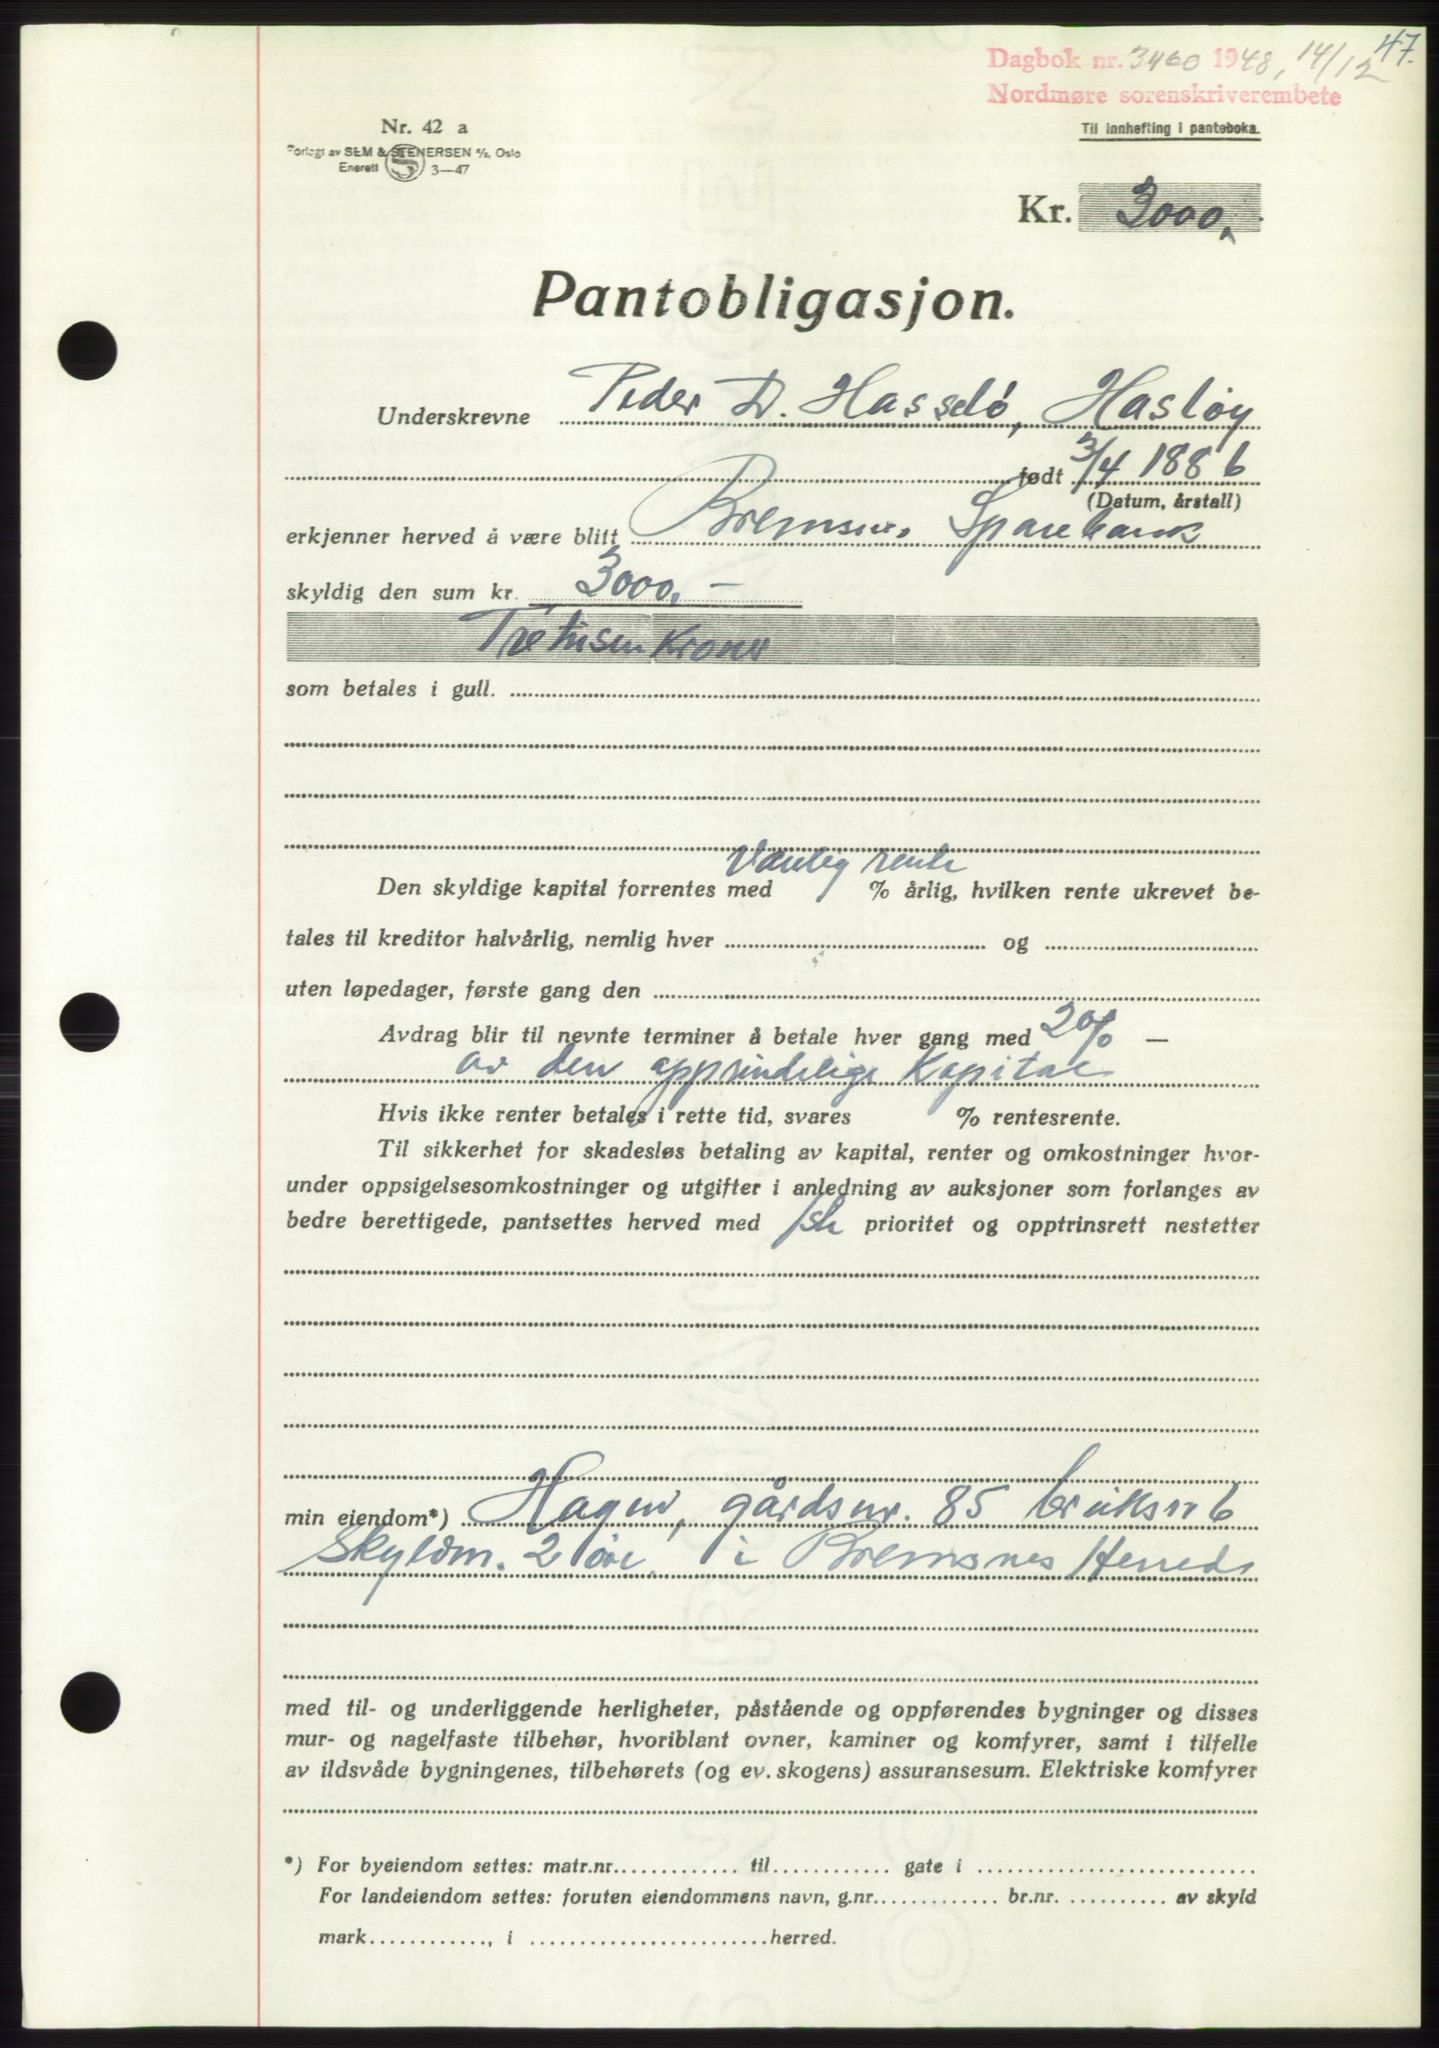 47.
Dagbok nr. 3460 1948, 14/12
Nordmøre sorenskriverembete
Til innhefting i panteboka.
Nr. 42 a
Forlagt av SEM & STENERSEN A/S, Oslo
Enerett S 3—47
Kr. 3000,-
Pantobligasjon.
Underskrevne Peder D. Hasselø, Hasløy
født 3/4 1886
(Datum, årstall)
erkjenner herved å være blitt Bremsnes Sparebank
skyldig den sum kr. 3000,-
Tretusen Kroner
som betales i gull.
Vanlig rente
Den skyldige kapital forrentes med % årlig, hvilken rente ukrevet be-
tales til kreditor halvårlig, nemlig hver og
uten løpedager, første gang den
Avdrag blir til nevnte terminer å betale hver gang med 2% —
av den opprindelige Kapital
Hvis ikke renter betales i rette tid, svares % rentesrente.
Til sikkerhet for skadesløs betaling av kapital, renter og omkostninger hvor-
under oppsigelsesomkostninger og utgifter i anledning av auksjoner som forlanges av
bedre berettigede, pantsettes herved med 1ste prioritet og opptrinsrett nestetter
min eiendom*) Hagen, gårdsnr. 85 bruksnr 6
Skyldm. 2 øre, i Bremsnes Herred
med til- og underliggende herligheter, påstående og oppførendes bygninger og disses
mur- og nagelfaste tilbehør, hvoriblant ovner, kaminer og komfyrer, samt i tilfelle
av ildsvåde bygningenes, tilbehørets (og ev. skogens) assuransesum. Elektriske komfyrer
*) For byeiendom settes: matr.nr. til gate i
For landeiendom settes: foruten eiendommens navn, g.nr. br.nr. av skyld
mark, i herred.